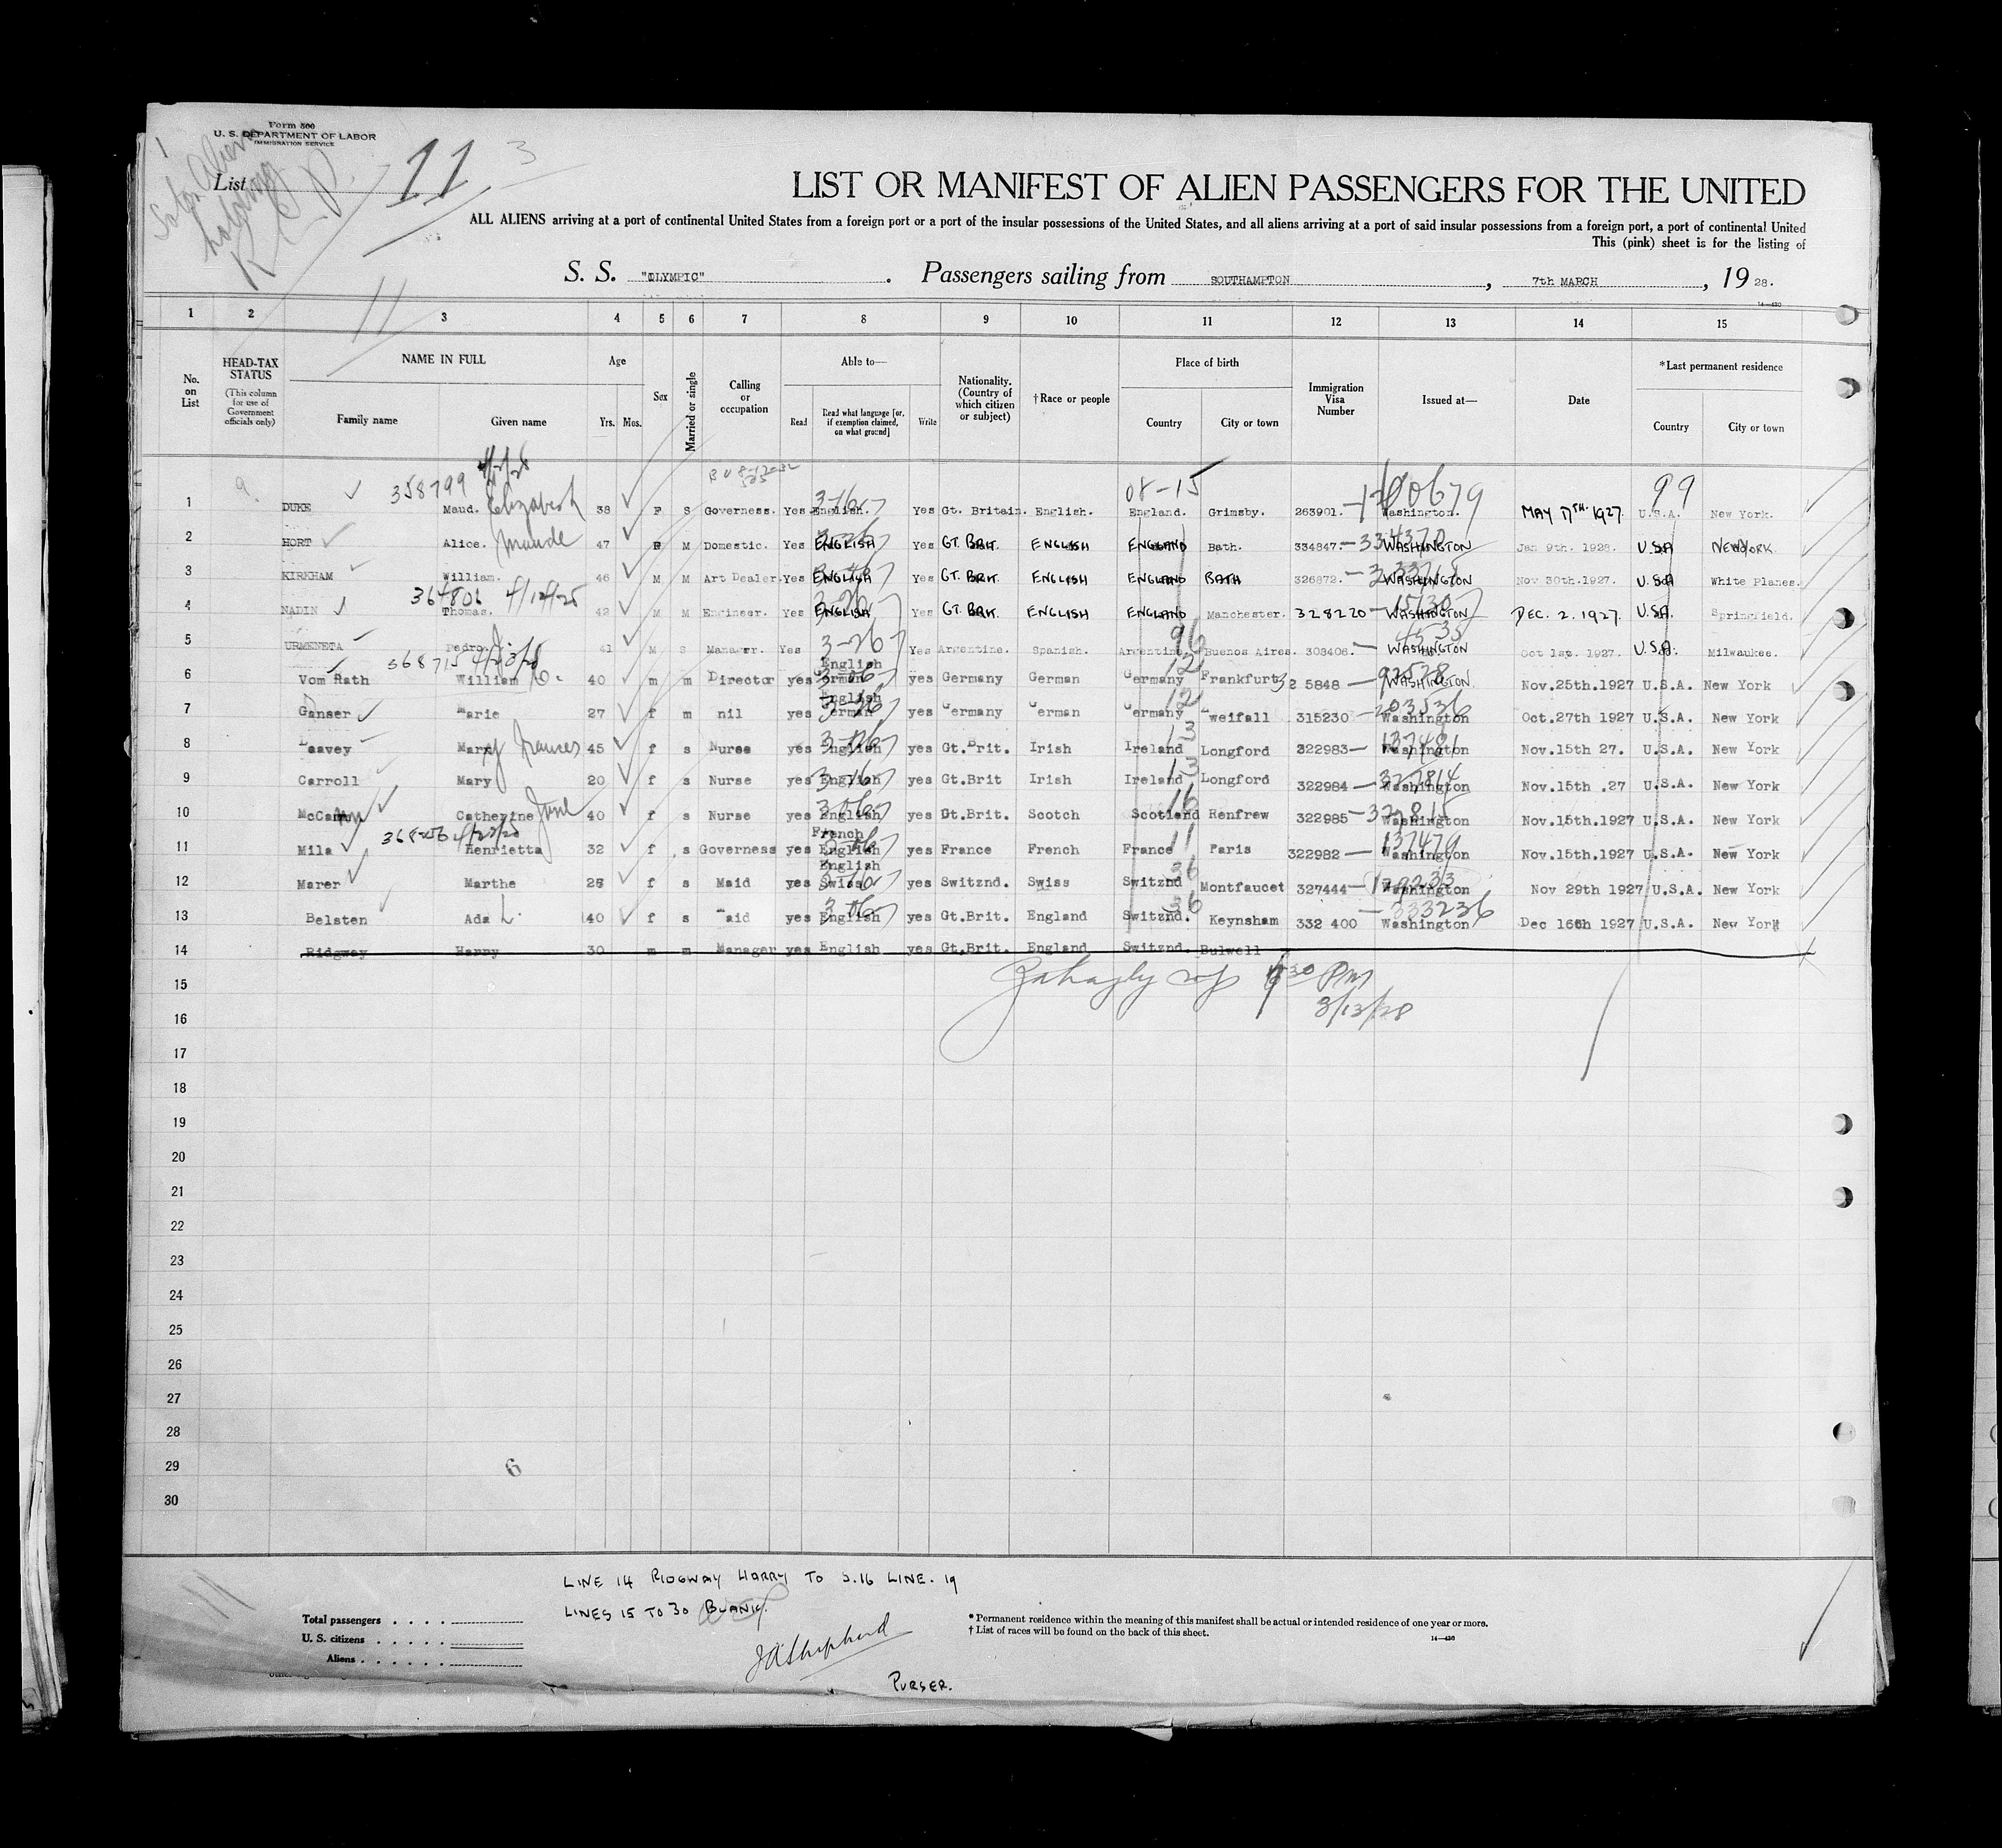 Form 500
U. S. DEPARTMENT OF LABOR
IMMIGRATION SERVICE
List 11 3
LIST OR MANIFEST OF ALIEN PASSENGERS FOR THE UNITED
ALL ALIENS arriving at a port of continental United States from a foreign port or a port of the insular possessions of the United States, and all aliens arriving at a port of said insular possessions from a foreign port, a port of continental United
This (pink) sheet is for the listing of
S. S. "OLYMPIC" . Passengers sailing from SOUTHAMPTON , 7th MARCH , 19 28.
14—430
11
1 2 3 4 5 6 7 8 9 10 11 12 13 14 15
No. on List HEAD-TAX STATUS (This column for use of Government officials only) NAME IN FULL Family name Given name Age Yrs. Mos. Sex Married or single Calling or occupation Able to— Read Read what language [or, if exemption claimed, on what ground] Write Nationality. (Country of which citizen or subject) †Race or people Place of birth Country City or town Immigration Visa Number Issued at— Date *Last permanent residence Country City or town
358799 08-15 99
1 DUKE Maud. Elizabeth 38 F S Governess. Yes English. Yes Gt. Britain. English. England. Grimsby. 263901. Washington. MAY 17TH. 1927. U.S.A. New York.
2 HORT Alice. Maude 47 F M Domestic. Yes ENGLISH Yes GT. BRIT. ENGLISH ENGLAND Bath. 334847. WASHINGTON Jan 9th. 1928. U.S.A NEW YORK.
3 KIRKHAM William. 46 M M Art Dealer. Yes ENGLISH Yes GT. BRIT. ENGLISH ENGLAND BATH 326872. WASHINGTON Nov 30th.1927. U.S.A White Planes.
364806
4 NADIN Thomas. 42 M M Engineer. Yes ENGLISH Yes GT. BRIT. ENGLISH ENGLAND Manchester. 328220 WASHINGTON DEC. 2. 1927. U.S.A. Springfield.
5 URMENETA Pedro. J. 41 M S Manager. Yes 3-26 Yes Argentine. Spanish. Argentine. Buenos Aires. 303406. WASHINGTON Oct 1st. 1927. U.S.A. Milwaukee.
368715 English
6 Vom Rath William 40 m m Director yes German yes Germany German Germany Frankfurt 32 5848 WASHINGTON. Nov.25th.1927 U.S.A. New York
English
7 Ganser Marie 27 f m nil yes German yes Germany German Germany Zweifall 315230 Washington Oct.27th 1927 U.S.A. New York
8 Leavey Mary Frances 45 f s Nurse yes English yes Gt.Brit. Irish Ireland Longford 322983 Washington Nov.15th 27. U.S.A. New York
9 Carroll Mary 20 f s Nurse yes English yes Gt.Brit Irish Ireland Longford 322984 Washington Nov.15th .27 U.S.A. New York
10 McCann Catherine Jane 40 f s Nurse yes English yes Gt.Brit. Scotch Scotland Renfrew 322985 Washington Nov.15th.1927 U.S.A. New York
French
11 Mila Henrietta 32 f s Governess yes English yes France French France Paris 322982 Washington Nov.15th.1927 U.S.A. New York
English
12 Marer Marthe 28 f s Maid yes Swiss yes Switznd. Swiss Switznd Montfaucet 327444 Washington Nov 29th 1927 U.S.A. New York
13 Belsten Ada L. 40 f s Maid yes English yes Gt.Brit. England Switznd. Keynsham 332 400 Washington Dec 16th 1927 U.S.A. New York
14 Ridgway Harry 30 m m Manager yes English yes Gt.Brit. England Switznd. Bulwell
15
3/13/28
16
17
18
19
20
21
22
23
24
25
26
27
28
29
6
30
LINE 14 RIDGWAY HARRY TO S.16 LINE. 19
LINES 15 TO 30 BLANK.
Total passengers . . . .
U. S. citizens . . . . .
Aliens . . . . . .
* Permanent residence within the meaning of this manifest shall be actual or intended residence of one year or more.
† List of races will be found on the back of this sheet.
14—430
J A Shepherd
PURSER.